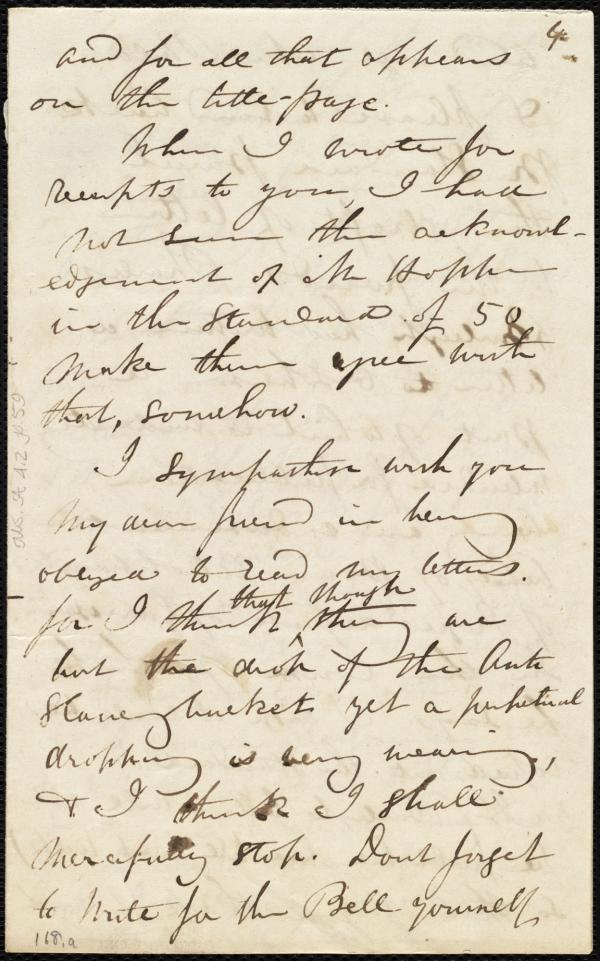 4
and for all that appears
on the title-page.
When I wrote for
receipts to you, I had
not seen the acknowl-
edgement of Mr Hopper
in the Standard of 50
make them agree with
that, somehow.
I sympathise with you
my dear friend in being
obliged to read my letters.
for I think that though they are
but the drop of the Anti
Slavery bucket yet a perpetual
dropping is very wearing,
& I think I shall
mercifully stop. Dont forget
to write for the Bell yourself
Ms. A 4.2 p.59
118,a